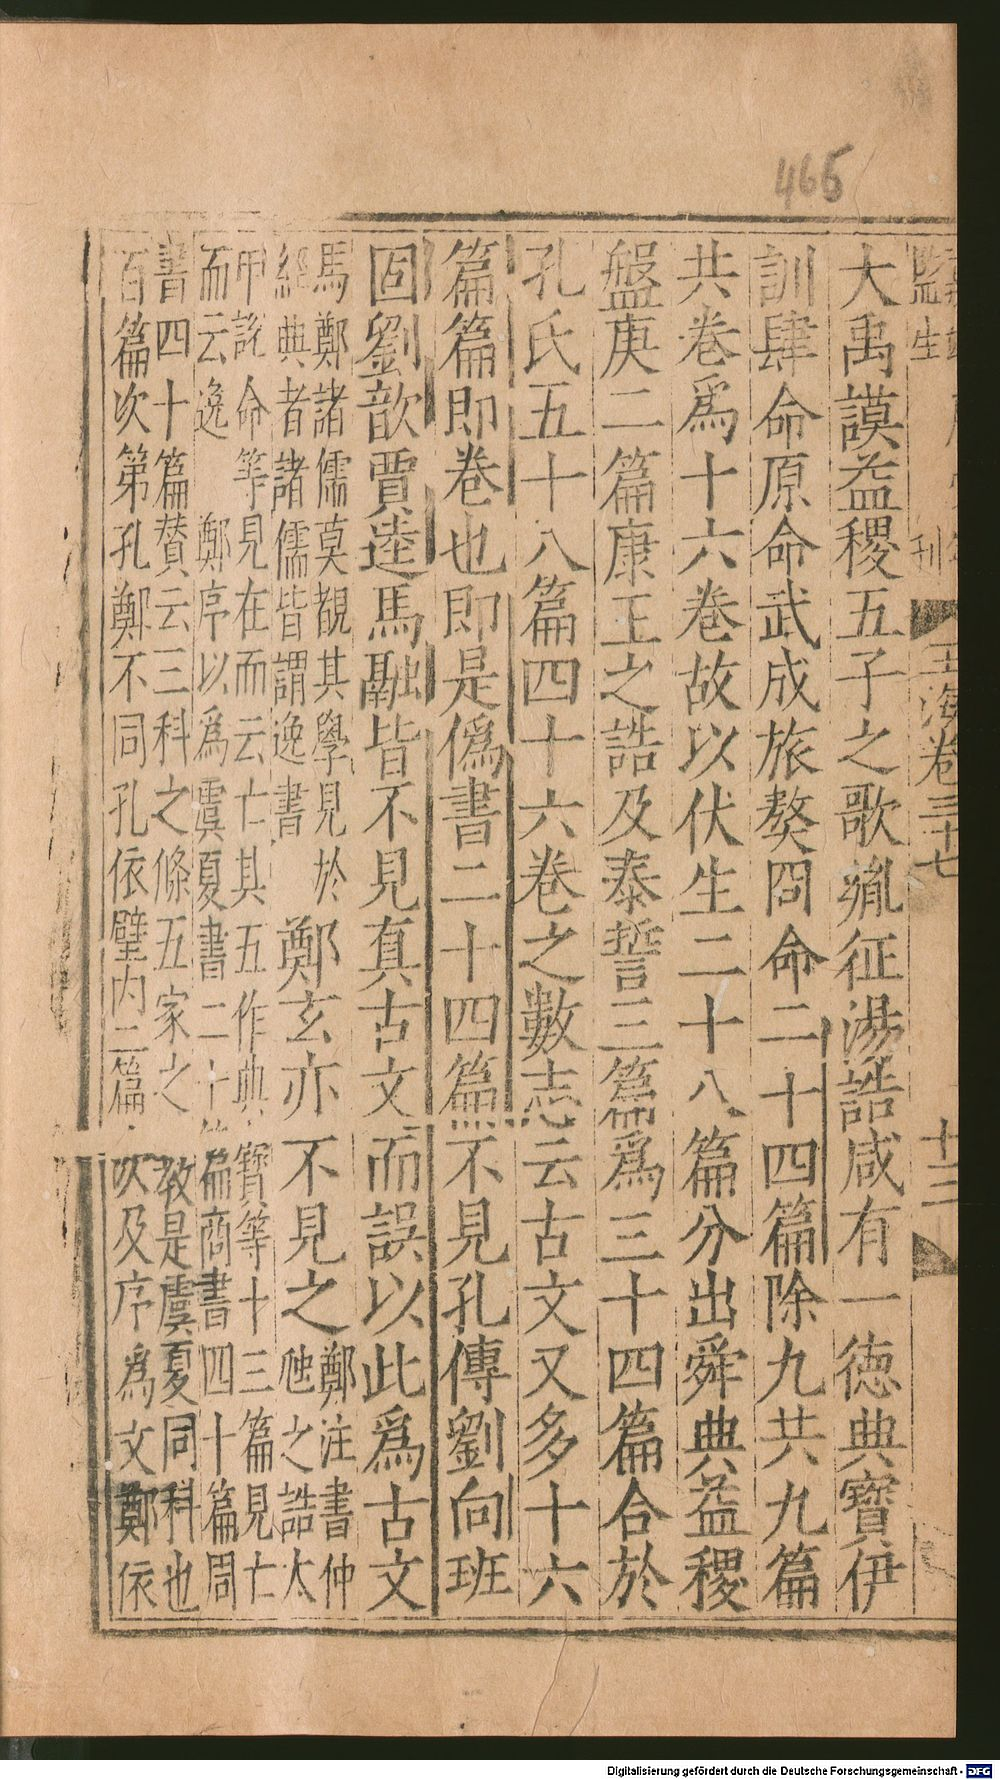 466
監生
刊
玉海卷三十七
十二
大禹謨益稷五子之歌胤征湯誥咸有一德典寶伊
訓肆命原命武成旅獒冏命二十四篇除九共九篇
共卷爲十六卷故以伏生二十八篇分出舜典益稷
盤庚二篇康王之誥及泰誓三篇爲三十四篇合於
孔氏五十八篇四十六卷之數志云古文又多十六
篇篇即卷也即是僞書二十四篇不見孔傳劉向班
固劉歆賈逵馬融皆不見真古文而誤以此爲古文
馬鄭諸儒莫覩其學見於
經典者諸儒皆謂逸書
鄭玄亦不見之
鄭注書仲
虺之誥太
甲說命等見在而云亡其五作典寶等十三篇見亡
而云逸 鄭序以爲虞夏書二十篇商書四十篇周
書四十篇贊云三科之條五家之教是虞夏同科也
百篇次第孔鄭不同孔依壁内篇次及序爲文鄭依
Digitalisierung gefördert durch die Deutsche Forschungsgemeinschaft - DFG